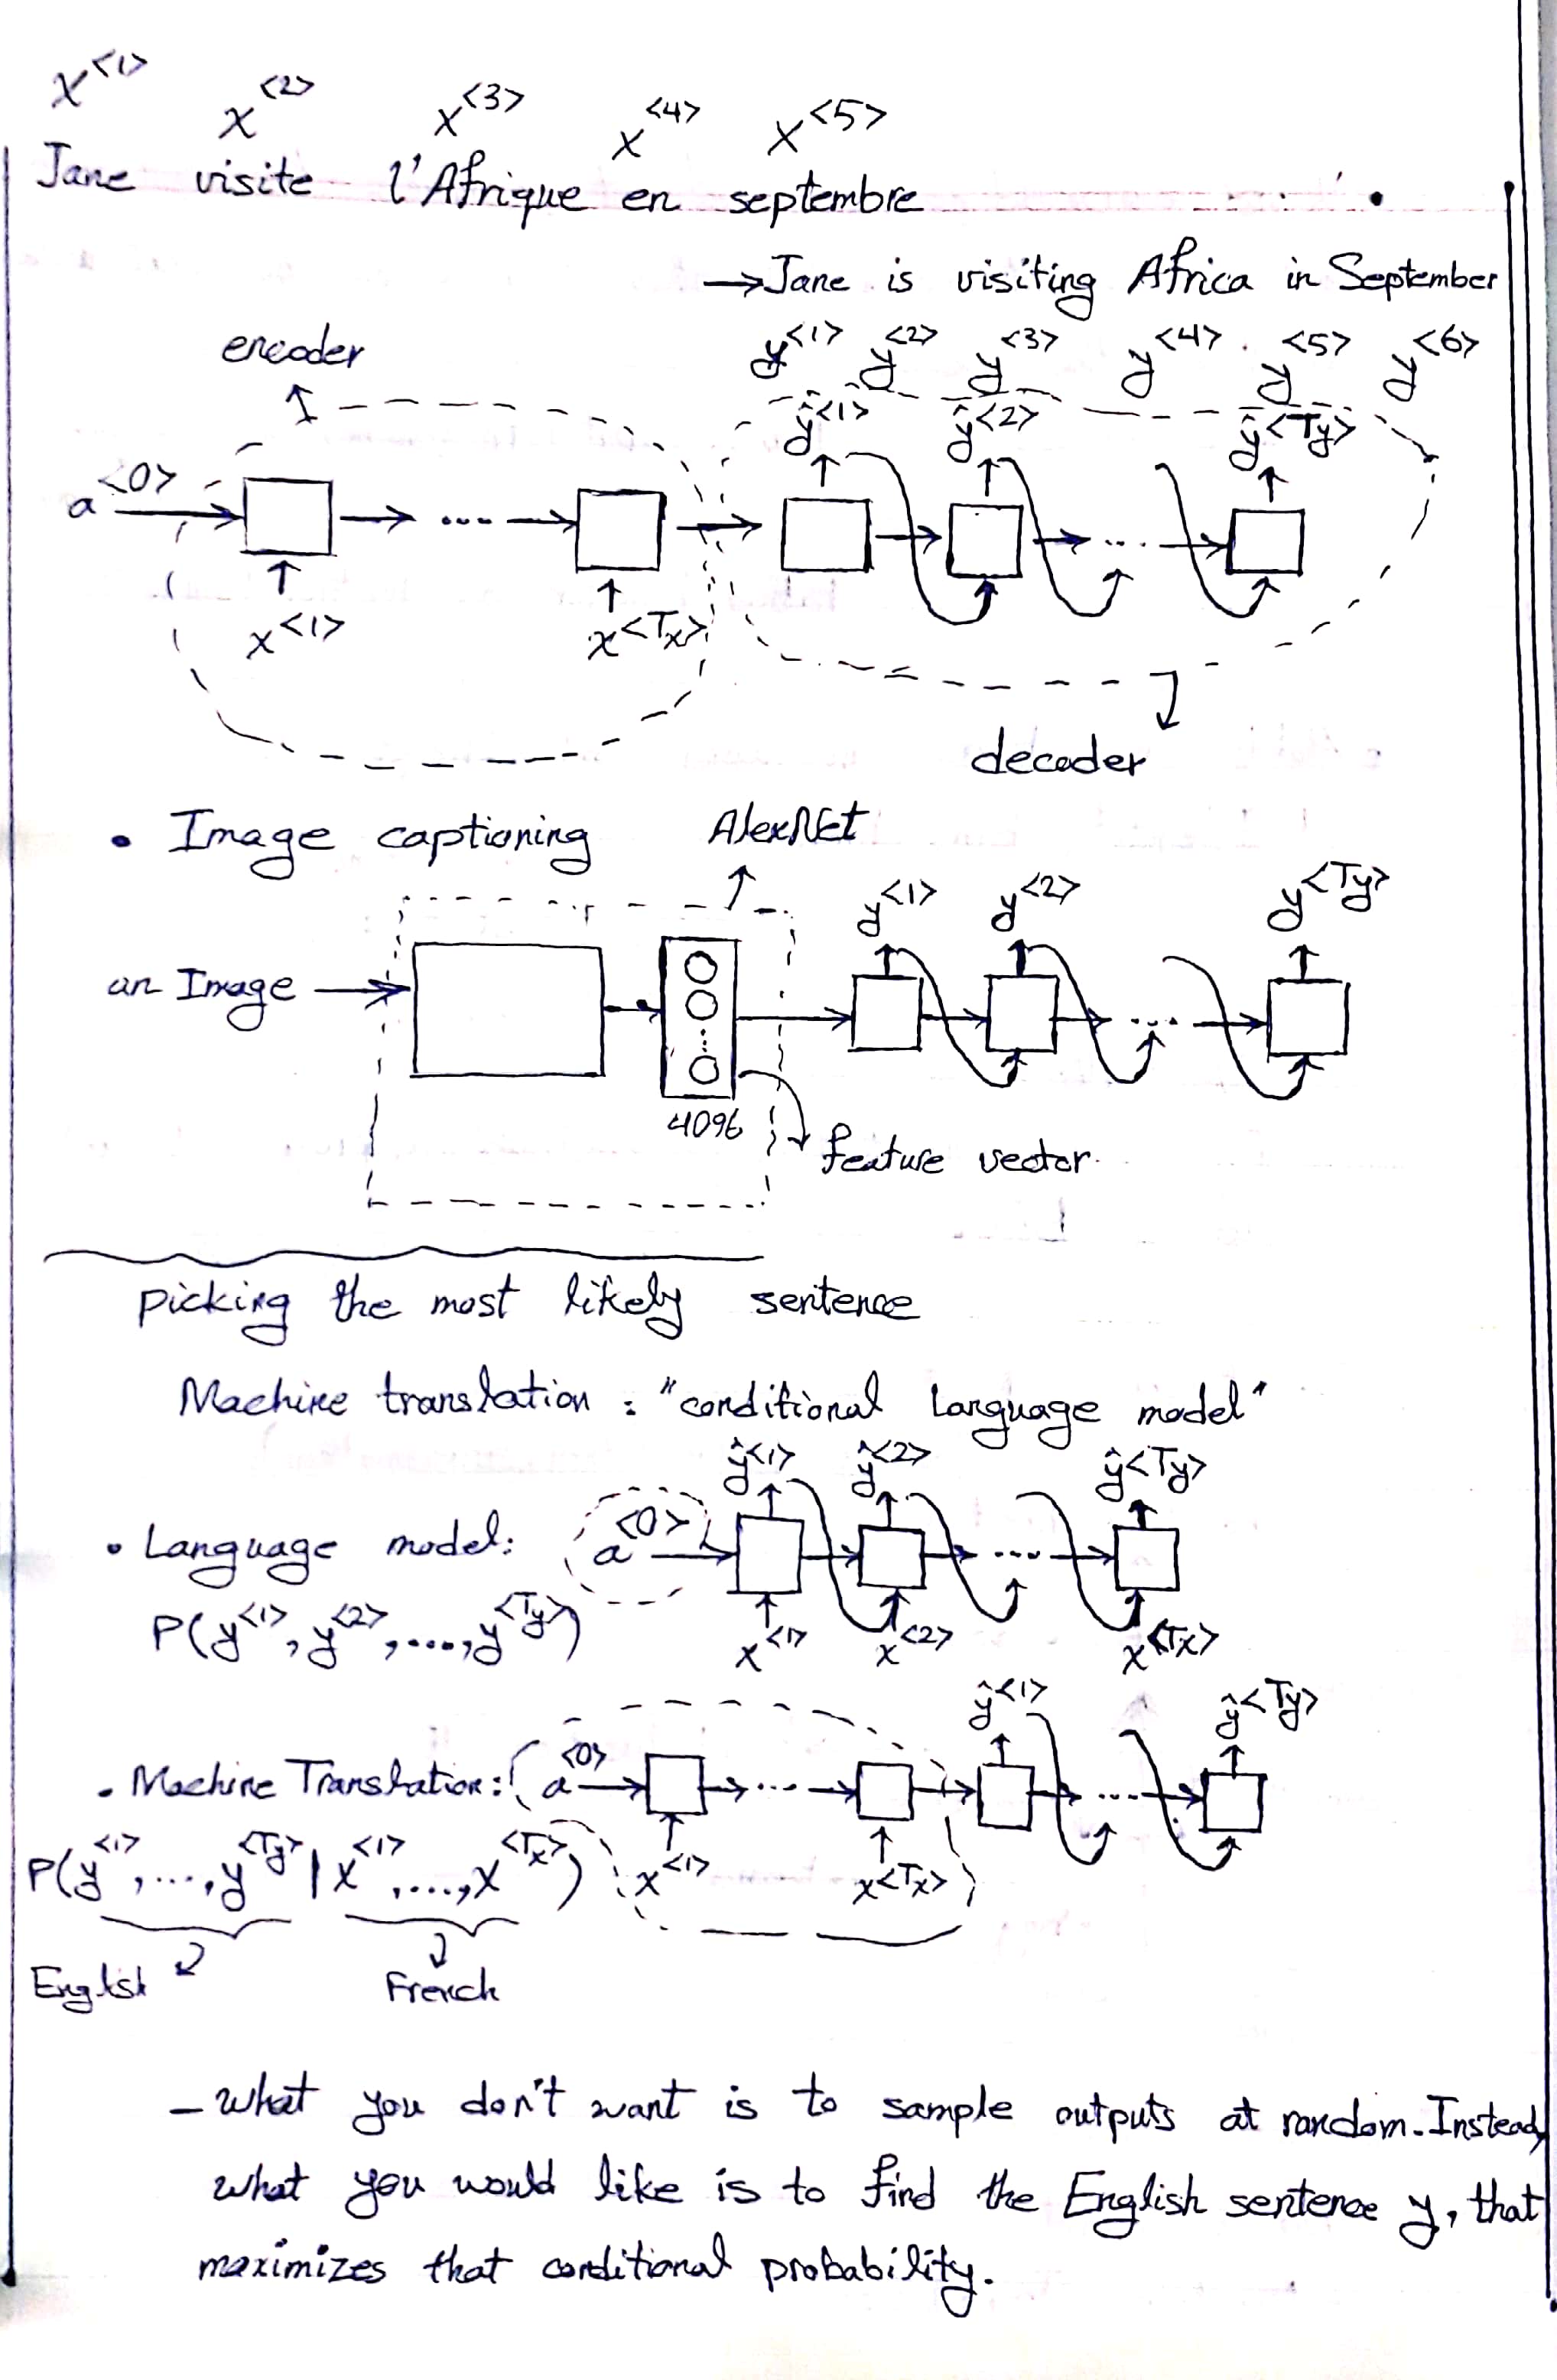 x<1> x<2> x<3> x<4> x<5>
Jane visite l'Afrique en septembre
→ Jane is visiting Africa in September
y<1> y<2> y<3> y<4> y<5> y<6>
encoder
ŷ<1> ŷ<2> ŷ<Ty>
a<0> → → ... → → → → ... →
x<1> x<Tx>
decoder
• Image captioning AlexNet
y<1> y<2> y<Ty>
an Image → ...
4096 feature vector
Picking the most likely sentence
Machine translation : "conditional language model"
ŷ<1> ŷ<2> ŷ<Ty>
• Language model: a<0> → ...
P(y<1>, y<2>, ...., y<Ty>) x<1> x<2> x<Tx>
ŷ<1> ŷ<Ty>
• Machine Translation: a<0> → → ... → → → ... →
P(y<1>, ..., y<Ty> | x<1>, ...., x<Tx>) x<1> x<Tx>
English French
- what you don't want is to sample outputs at random. Instead,
what you would like is to find the English sentence y, that
maximizes that conditional probability.